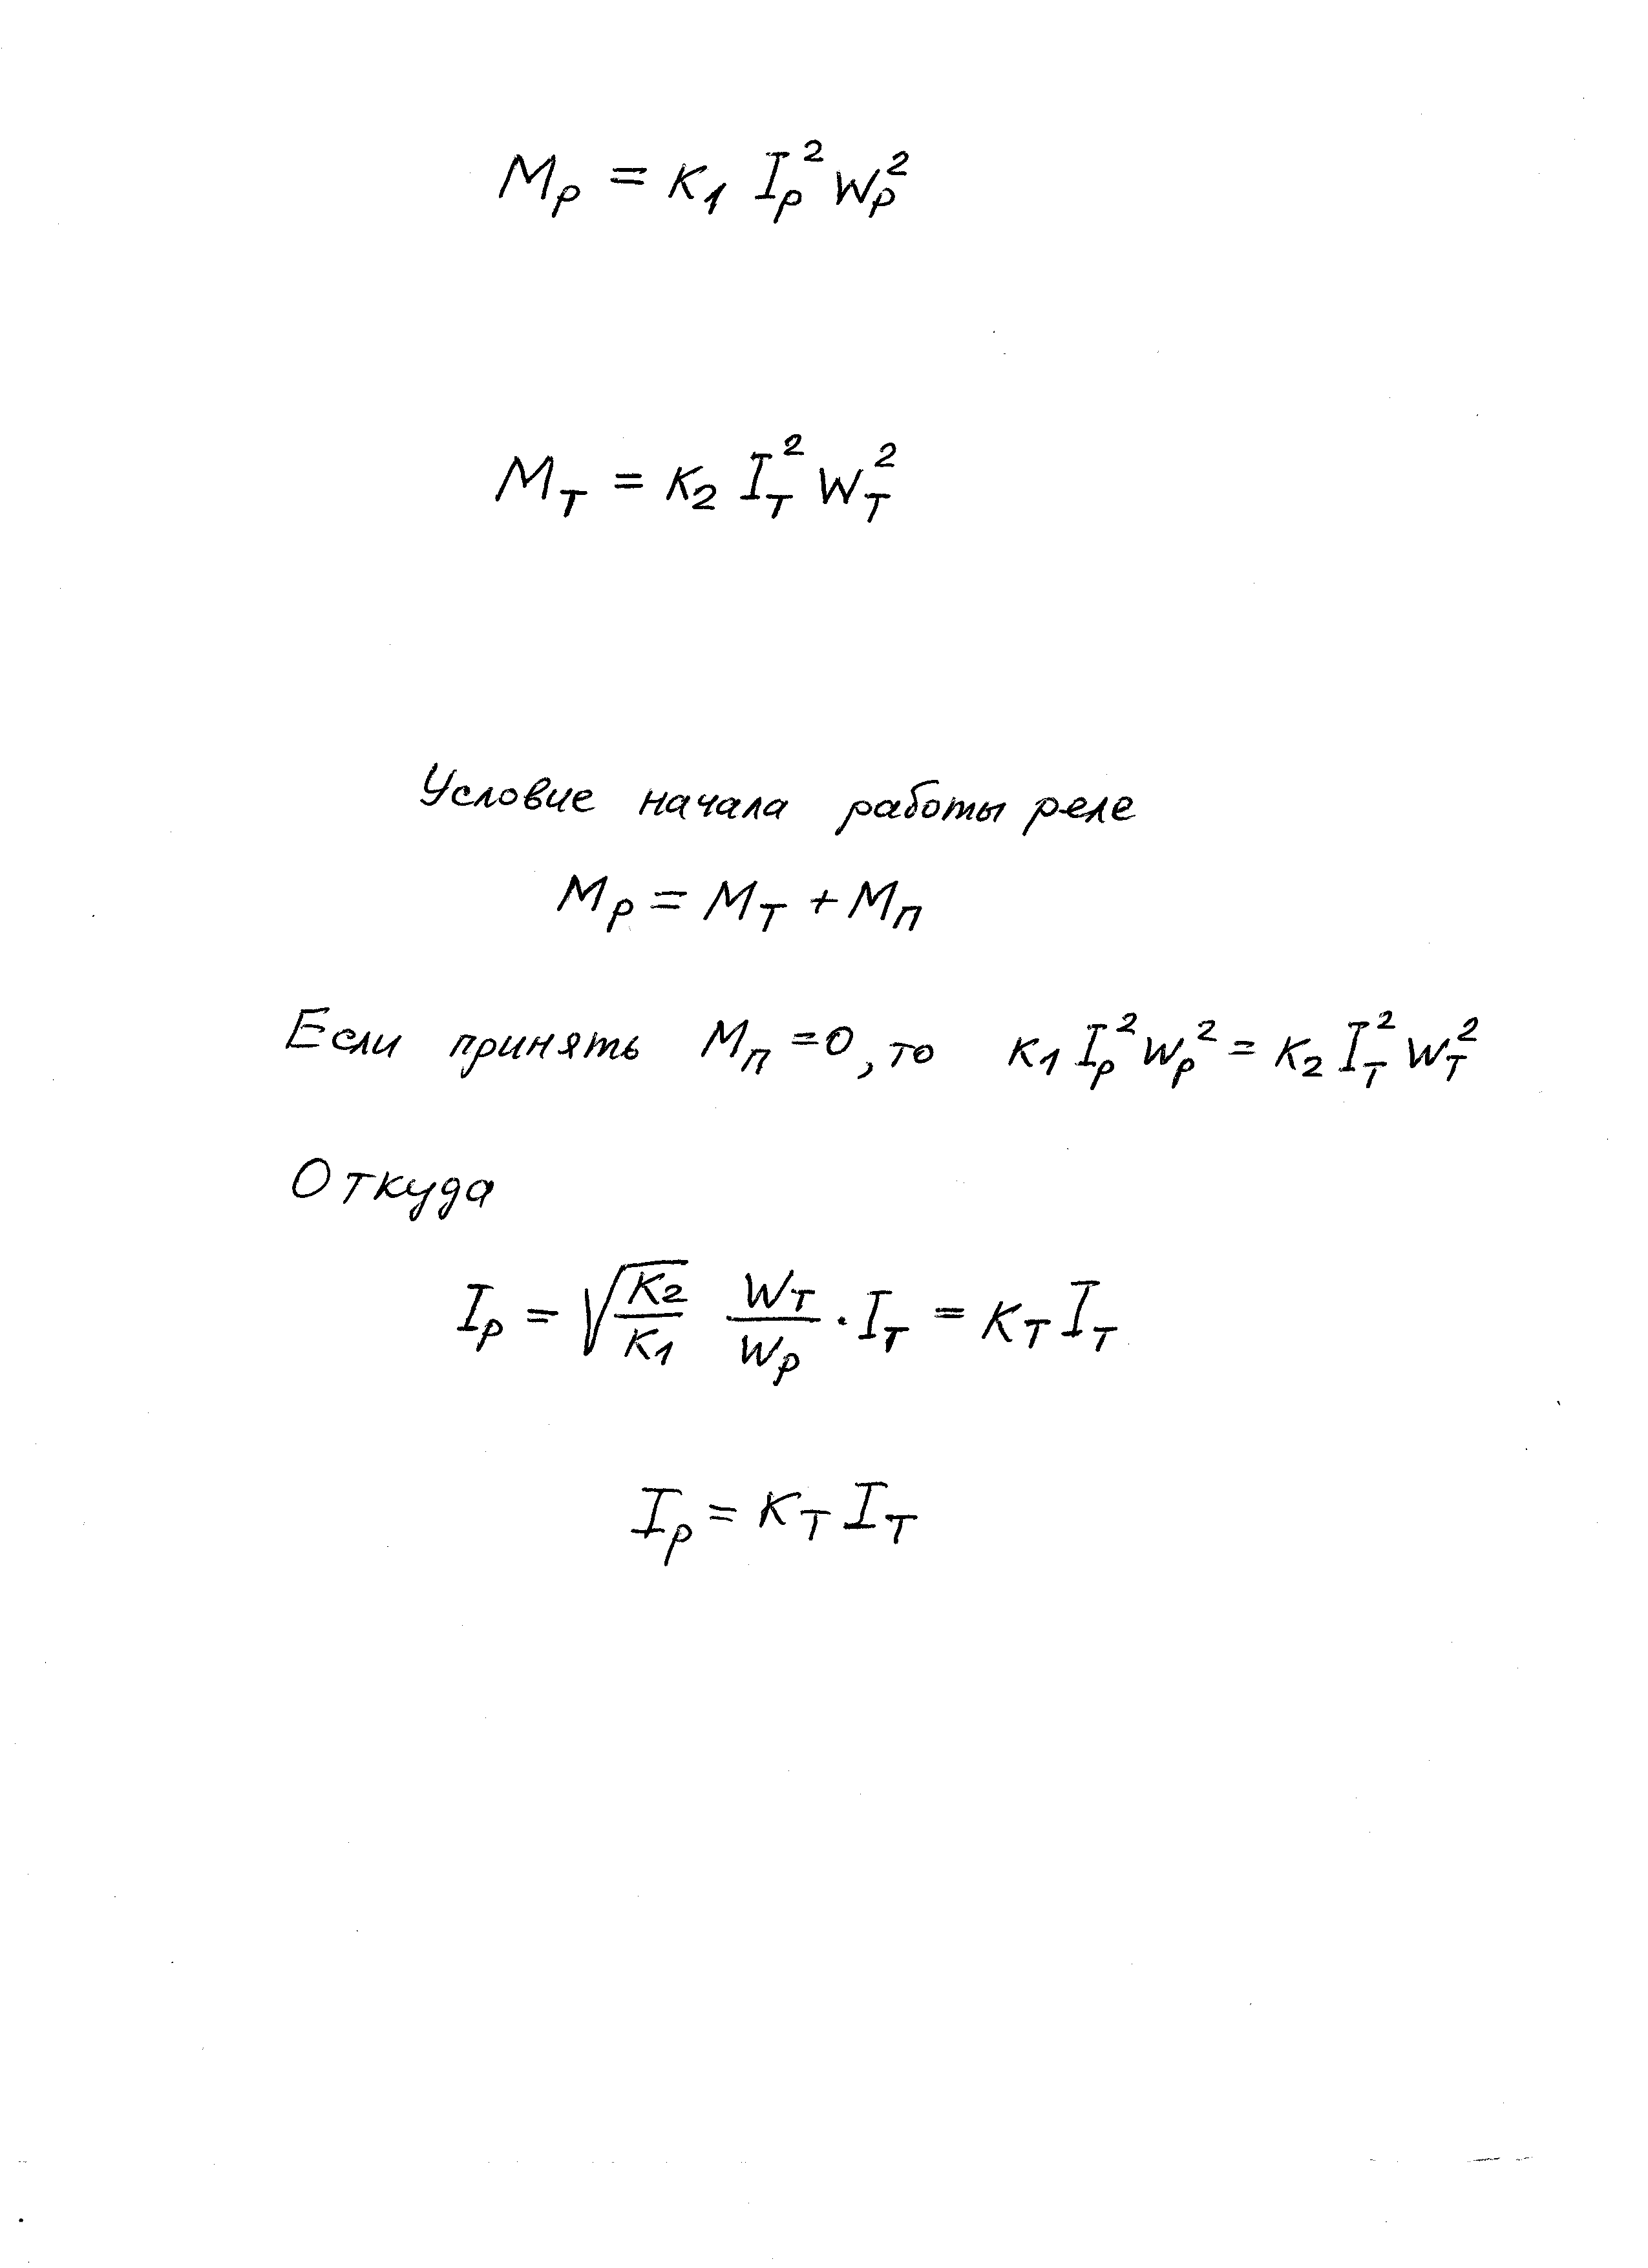 Mр = к₁ Iр² Wр²
Mт = к₂ Iт² Wт²
Условие начала работы реле
Mр = Mт + Mп
Если принять Mп = 0, то к₁ Iр² Wр² = к₂ Iт² Wт²
Откуда
Iр = √(к₂/к₁) Wт/Wр · Iт = кт Iт
Iр = кт Iт